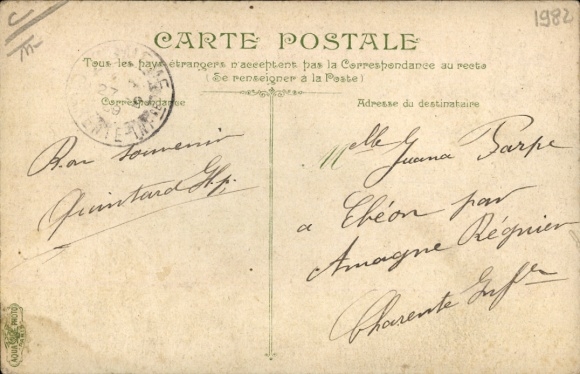 1982
CARTE POSTALE
Tous les pays étrangers n'acceptent pas la Correspondance au recto
(Se renseigner à la Poste)
Correspondance
Adresse du destinataire
Bon souvenir
Quintard
Melle Juana
a Théon par
Régnier
Charente Infre
AQUA PHOTO